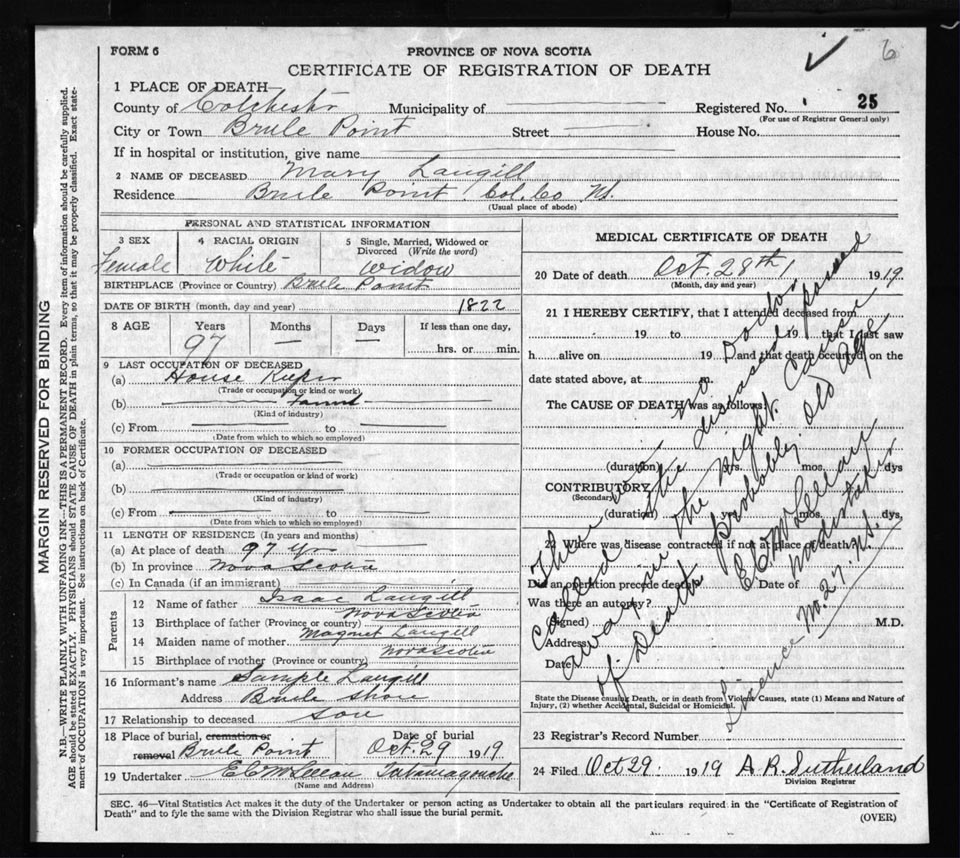 FORM 6
PROVINCE OF NOVA SCOTIA
6
CERTIFICATE OF REGISTRATION OF DEATH
1 PLACE OF DEATH—
County of Colchester Municipality of Registered No. 25
(For use of Registrar General only)
City or Town Brule Point Street House No.
If in hospital or institution, give name
2 NAME OF DECEASED Mary Langill
Residence Brule Point Col. Co N.S.
(Usual place of abode)
PERSONAL AND STATISTICAL INFORMATION
3 SEX 4 RACIAL ORIGIN 5 Single, Married, Widowed or Divorced (Write the word)
Female White Widow
BIRTHPLACE (Province or Country) Brule Point
DATE OF BIRTH (month, day and year) 1822
8 AGE Years Months Days If less than one day,
97 — — hrs. or min.
9 LAST OCCUPATION OF DECEASED
(a) House Keeper
(Trade or occupation or kind or work)
(b)
(Kind of industry)
(c) From to
(Date from which to which so employed)
10 FORMER OCCUPATION OF DECEASED
(a)
(Trade or occupation or kind of work)
(b)
(Kind of industry)
(c) From to
(Date from which to which so employed)
11 LENGTH OF RESIDENCE (In years and months)
(a) At place of death 97 Yrs
(b) In province Nova Scotia
(c) In Canada (if an immigrant)
Parents
12 Name of father Isaac Langill
13 Birthplace of father (Province or country) Nova Scotia
14 Maiden name of mother Magret Langill
15 Birthplace of mother (Province or country) Nova Scotia
16 Informant's name Sample Langill
Address Brule Shore
17 Relationship to deceased son
18 Place of burial, cremation or removal Brule Point Date of burial Oct. 29 1919
19 Undertaker E C McLellan Tatamagouche
(Name and Address)
MEDICAL CERTIFICATE OF DEATH
20 Date of death Oct. 28th 1919
(Month, day and year)
21 I HEREBY CERTIFY, that I attended deceased from
19 to 19 that I last saw
h alive on 19 and that death occurred, on the
date stated above, at m.
The CAUSE OF DEATH was as follows:
(duration) yrs. mos. dys
CONTRIBUTORY
(Secondary)
(duration) yrs. mos. dys
22 Where was disease contracted if not at place of death?
Did an operation precede death? Date of
Was there an autopsy?
(Signed) M.D.
Address
Date
There was no Doctor
called the diseased passed
away in the night. Cause
of Death probably old age
E C McLellan
Undertaker
Licence No. 27. N.S.
State the Disease causing Death, or in death from Violent Causes, state (1) Means and Nature of
Injury, (2) whether Accidental, Suicidal or Homicidal.
23 Registrar's Record Number
24 Filed Oct 29. 1919 A R. Sutherland
Division Registrar
SEC. 46—Vital Statistics Act makes it the duty of the Undertaker or person acting as Undertaker to obtain all the particulars required in the "Certificate of Registration of
Death" and to fyle the same with the Division Registrar who shall issue the burial permit.
(OVER)
MARGIN RESERVED FOR BINDING
N.B.—WRITE PLAINLY WITH UNFADING INK—THIS IS A PERMANENT RECORD. Every item of information should be carefully supplied.
AGE should be stated EXACTLY. PHYSICIANS should STATE CAUSE OF DEATH in plain terms, so that it may be properly classified. Exact state-
ment of OCCUPATION is very important. See instructions on back of Certificate.